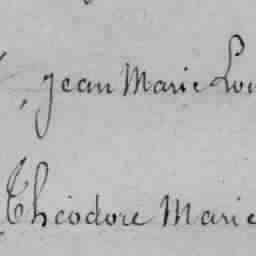 , Jean Marie Lou
Théodore Marie